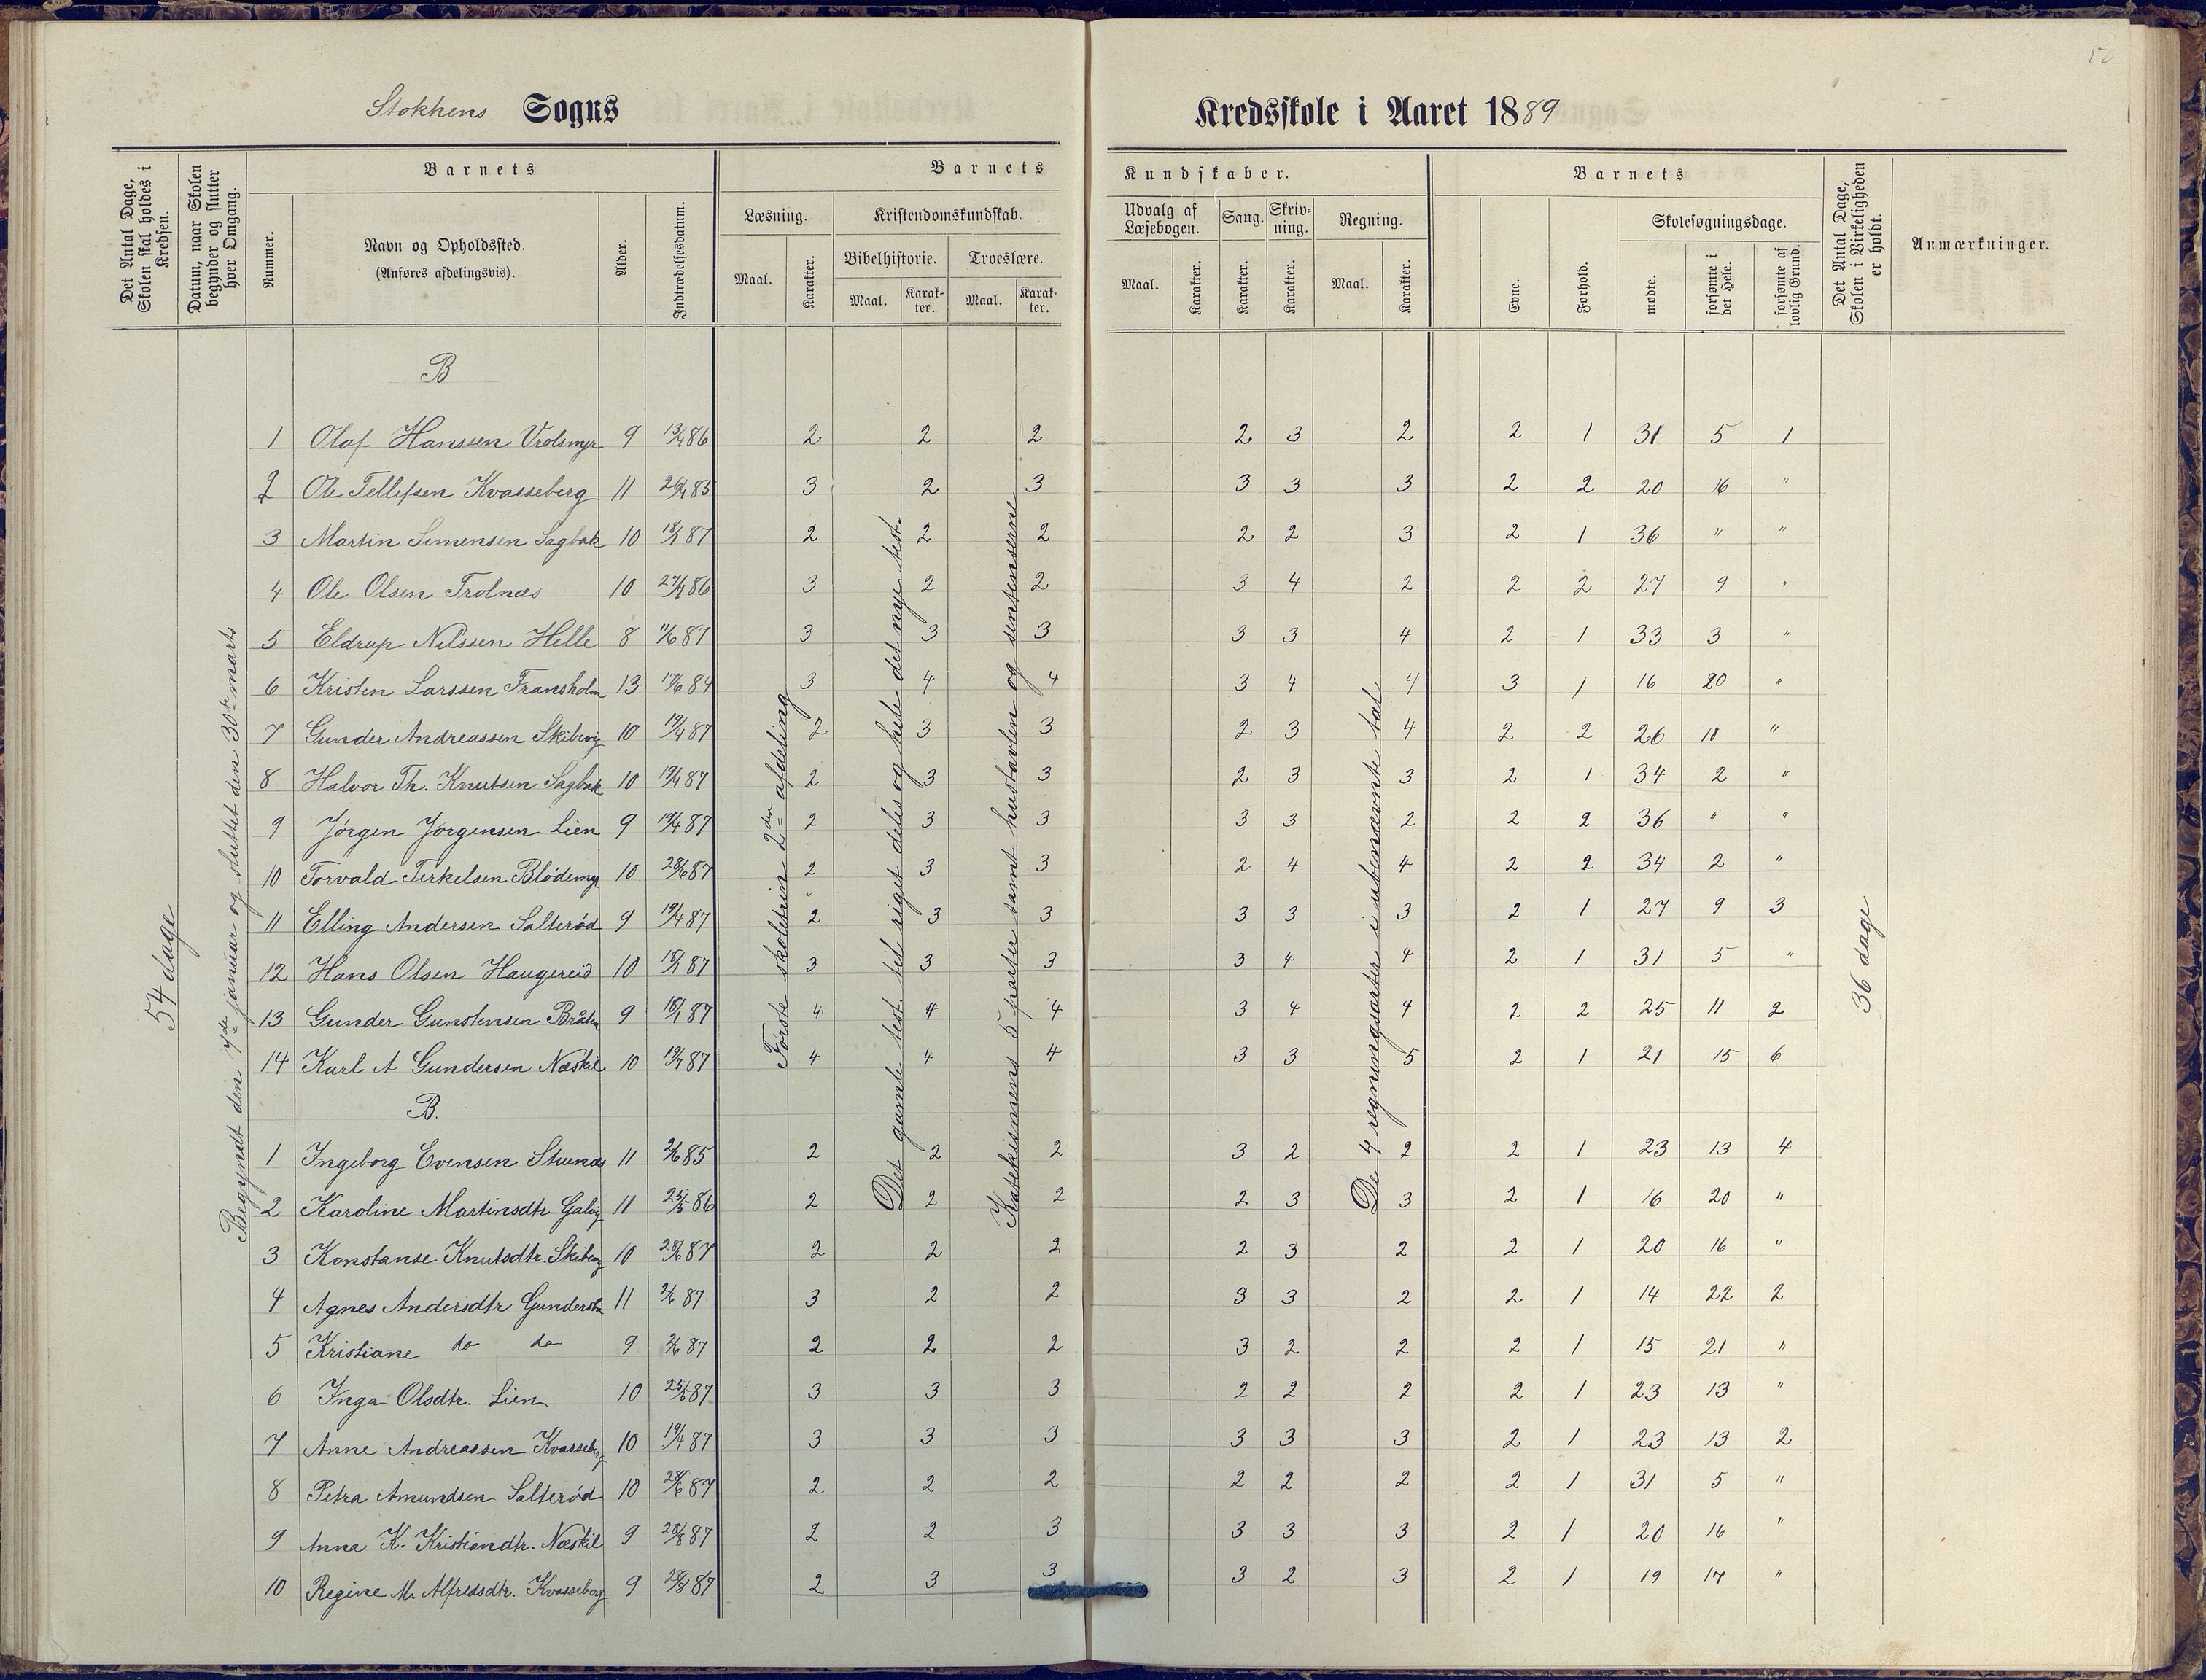 50
Stokkens Sogns Kredsskole i Aaret 1889
Det Antal Dage, Skolen skal holdes i Kredsen.
Datum, naar Skolen begynder og slutter hver Omgang.
Barnets
Nummer.
Navn og Opholdssted.
(Anføres afdelingsvis).
Alder.
Indtrædelsesdatum.
Barnets Kundskaber.
Læsning.
Maal.
Karakter.
Kristendomskundskab.
Bibelhistorie.
Maal.
Karakter.
Troeslære.
Maal.
Karakter.
Udvalg af Læsebogen.
Maal.
Karakter.
Sang.
Karakter.
Skrivning.
Karakter.
Regning.
Maal.
Karakter.
Barnets
Evne.
Forhold.
Skolesøgningsdage.
mødte.
forsømte i det Hele.
forsømte af lovlig Grund.
Det Antal Dage, Skolen i Virkeligheden er holdt.
Anmærkninger.
54 dage
Begyndt den 7de januar og sluttet den 30te marts
Første skoletrin 2den afdeling
Det gamle test. til riget delis og hele det nye test.
Katekismens 5 parter samt hustavlen og sentenserne
De 4 regningsarter i ubenævnte tal
36 dage
B
1 Olaf Hanssen Vrolsmyr 9 13/4 86 2 2 2 2 3 2 2 1 31 5 1
2 Ole Tellefsen Kvasseberg 11 26/4 85 3 2 3 3 3 3 2 2 20 16 "
3 Martin Simensen Sagbak 10 18/1 87 2 2 2 2 2 3 2 1 36 " "
4 Ole Olsen Trolnæs 10 27/4 86 3 2 2 3 4 2 2 2 27 9 "
5 Eldrup Nilssen Helle 8 11/6 87 3 3 3 3 3 4 2 1 33 3 "
6 Kristen Larssen Fransholm 13 17/6 84 3 4 4 3 4 4 3 1 16 20 "
7 Gunder Andreassen Skibevig 10 19/4 87 2 3 3 2 3 4 2 2 26 10 "
8 Halvor Th. Knutsen Sagbak 10 19/4 87 2 3 3 2 3 3 2 1 34 2 "
9 Jørgen Jørgensen Lien 9 19/4 87 2 3 3 3 3 2 2 2 36 " "
10 Torvald Terkelsen Blødemyr 10 28/6 87 2 3 3 2 4 4 2 2 34 2 "
11 Elling Andersen Salterød 9 19/4 87 2 3 3 3 3 3 2 1 27 9 3
12 Hans Olsen Haugereid 10 18/1 87 3 3 3 3 4 4 2 1 31 5 "
13 Gunder Gunstensen Bråten 9 18/1 87 4 4 4 3 4 4 2 2 25 11 2
14 Karl A Gundersen Næskil 10 19/4 87 4 4 4 3 3 5 2 1 21 15 6
B.
1 Ingeborg Evensen Stuenæs 11 2/6 85 2 2 2 3 2 2 2 1 23 13 4
2 Karoline Martinsdtr. Galvig 11 25/5 86 2 2 2 2 3 3 2 1 16 20 "
3 Konstanse Knutsdtr. Skibevig 10 28/6 87 2 2 2 2 3 2 2 1 20 16 "
4 Agnes Andersdtr Gunderst. 11 2/6 87 3 2 2 3 3 2 2 1 14 22 2
5 Kristiane do do 9 2/6 87 2 2 2 3 2 2 2 1 15 21 "
6 Inga Olsdtr. Lien 10 25/5 87 3 3 3 2 2 2 2 1 23 13 "
7 Anne Andreassen Kvasseberg 10 19/4 87 3 3 3 3 3 3 2 1 23 13 2
8 Petra Amundsen Salterød 10 28/6 87 2 2 2 2 2 2 2 1 31 5 "
9 Anna K. Kristiandtr. Næskil 9 28/8 87 2 2 3 3 3 3 2 1 20 16 "
10 Regine M. Alfredsdtr. Kvasseberg 9 28/8 87 2 3 3 3 2 3 2 1 19 17 "